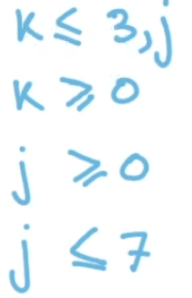 K ≤ 3, j
K ≥ 0
j ≥ 0
j ≤ 7